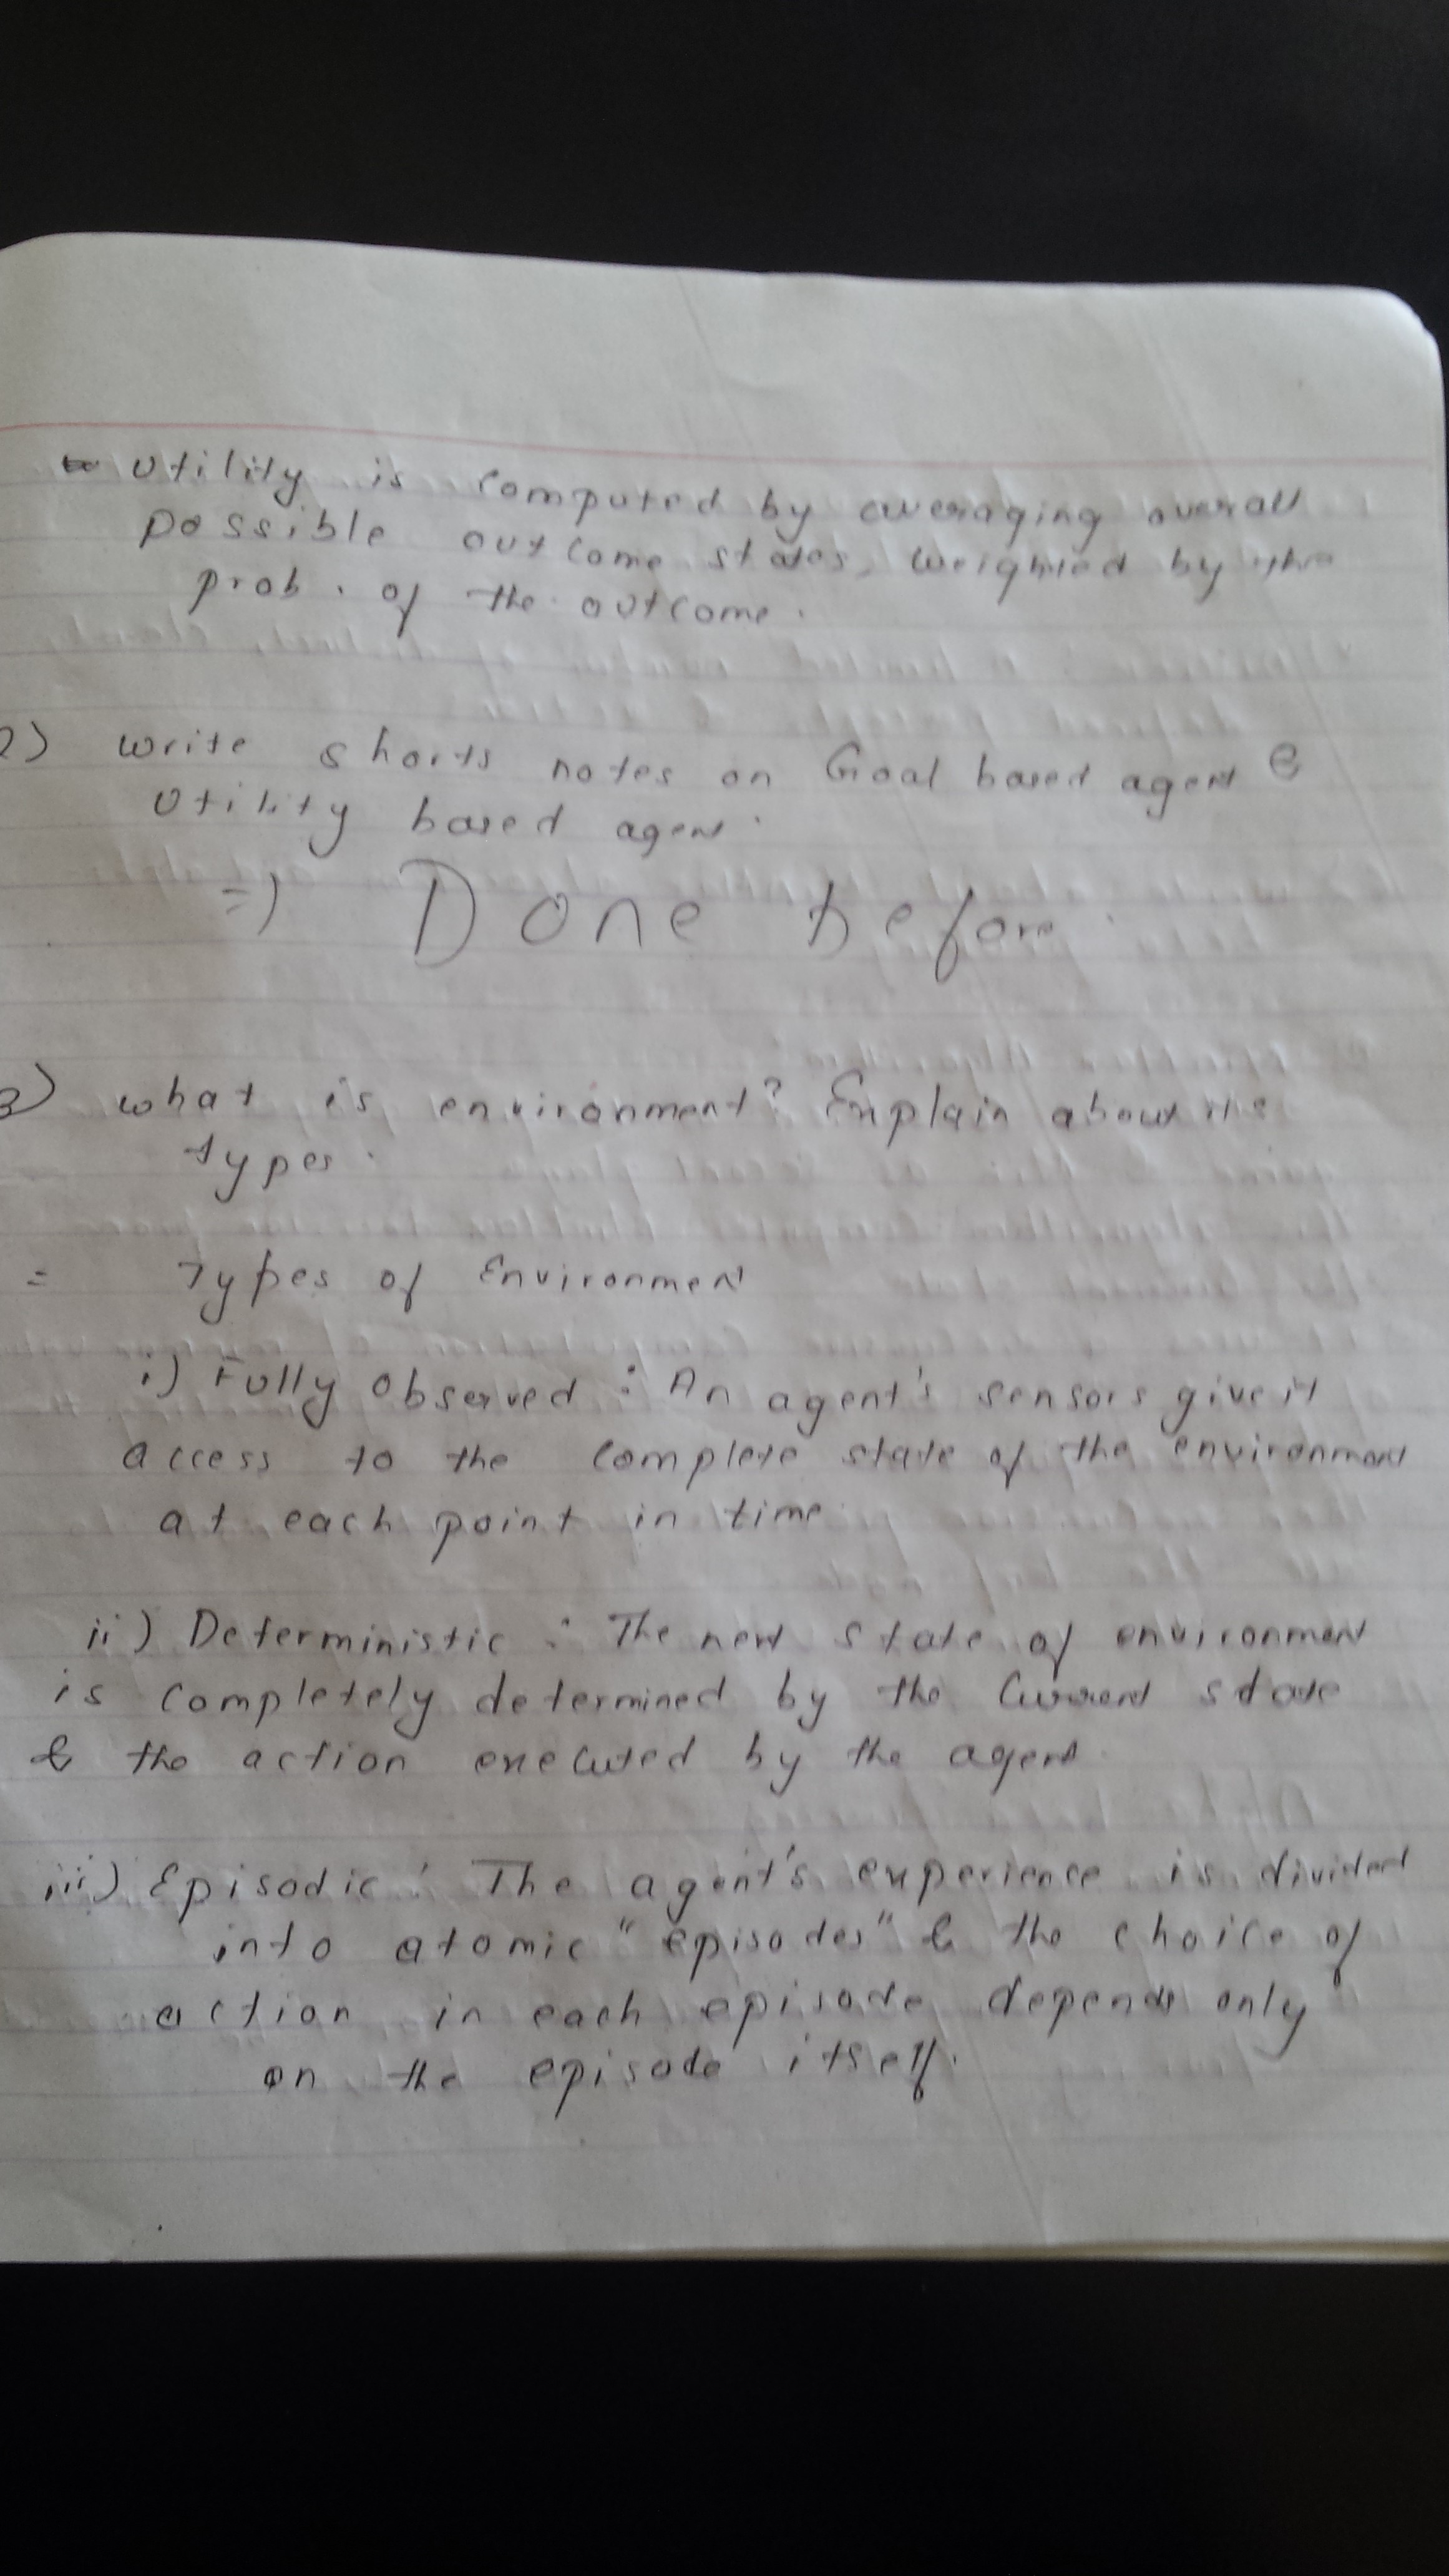 Utility is computed by averaging overall
possible outcome states, weighted by the
prob. of the outcome.
2) write shorts notes on Goal based agent &
Utility based agent.
=) Done before.
3) what is environment? Explain about its
types.
= Types of Environment
i) Fully Observed : An agent's sensors give it
access to the complete state of the environment
at each point in time.
ii) Deterministic : The next state of environment
is completely determined by the current state
& the action executed by the agent.
iii) Episodic : The agent's experience is divided
into atomic "episodes" & the choice of
action in each episode depends only
on the episode itself.